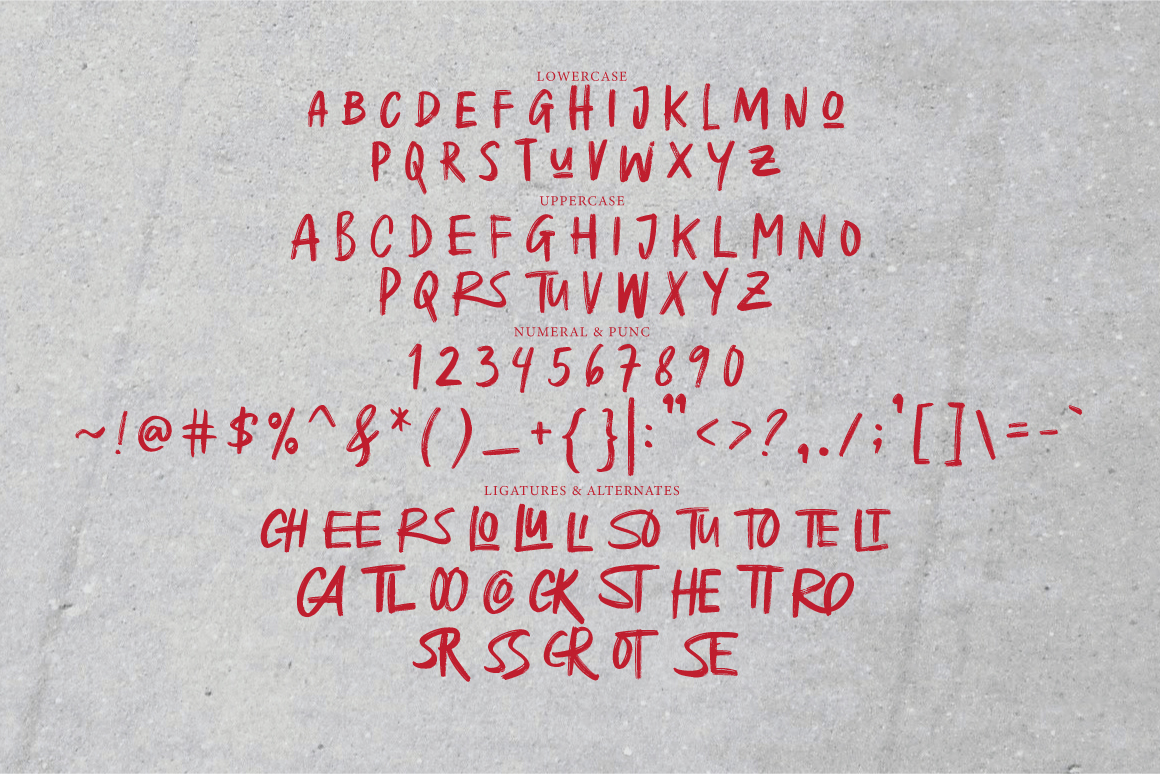 LOWERCASE
A B C D E F G H I J K L M N O
P Q R S T U V W X Y Z
UPPERCASE
A B C D E F G H I J K L M N O
P Q R S T U V W X Y Z
NUMERAL & PUNC
1 2 3 4 5 6 7 8 9 0
~ ! @ # $ % ^ & * ( ) _ + { } | : " < > ? , . / ; ' [ ] \ = - `
LIGATURES & ALTERNATES
CH EE RS LO LU LI SO TU TO TE LT
CA TL OO CO CK ST HE TT RO
SR SS CR OT SE